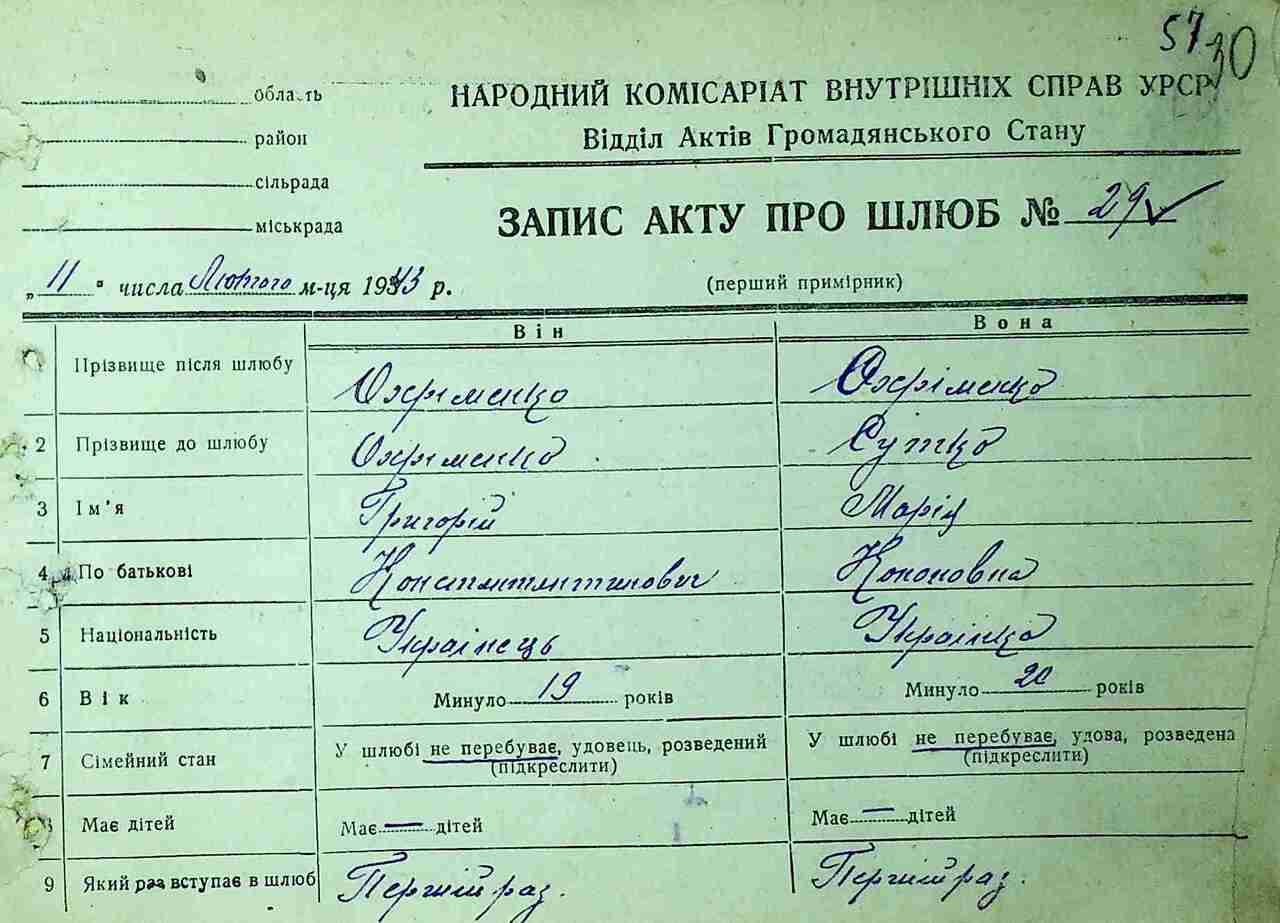 57
30
область
район
сільрада
міськрада
НАРОДНИЙ КОМІСАРІАТ ВНУТРІШНІХ СПРАВ УРСР
Відділ Актів Громадянського Стану
ЗАПИС АКТУ ПРО ШЛЮБ № 29
„11" числа Лютого м-ця 1943 р.
(перший примірник)
Він Вона
Прізвище після шлюбу Охріменко Охріменко
2 Прізвище до шлюбу Охріменко Сутко
3 Ім'я Григорій Марія
4 По батькові Константинович Кононовна
5 Національність Українець Українка
6 Вік Минуло 19 років Минуло 20 років
7 Сімейний стан У шлюбі не перебуває, удовець, розведений (підкреслити) У шлюбі не перебуває, удова, розведена (підкреслити)
Має дітей Має — дітей Має — дітей
9 Який раз вступає в шлюб Перший раз. Перший раз.